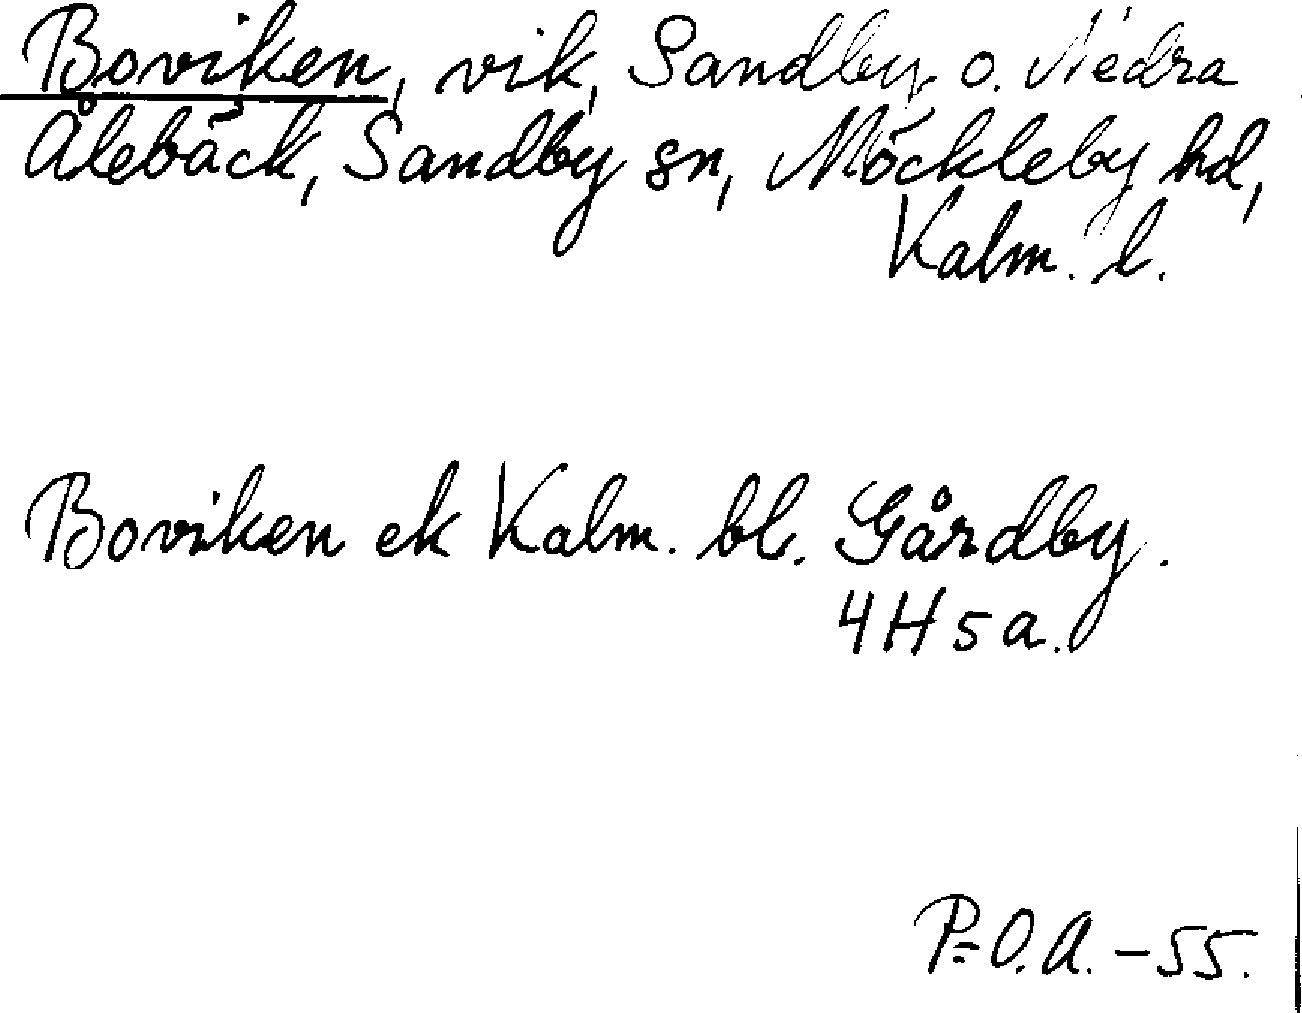 Boviken, vik, Sandby o. Nedra
Ålebäck, Sandby sn, Möckleby hd,
Kalm. l.
Boviken ek Kalm. bl. Gårdby.
4H5a.
P=O.A. – 55.